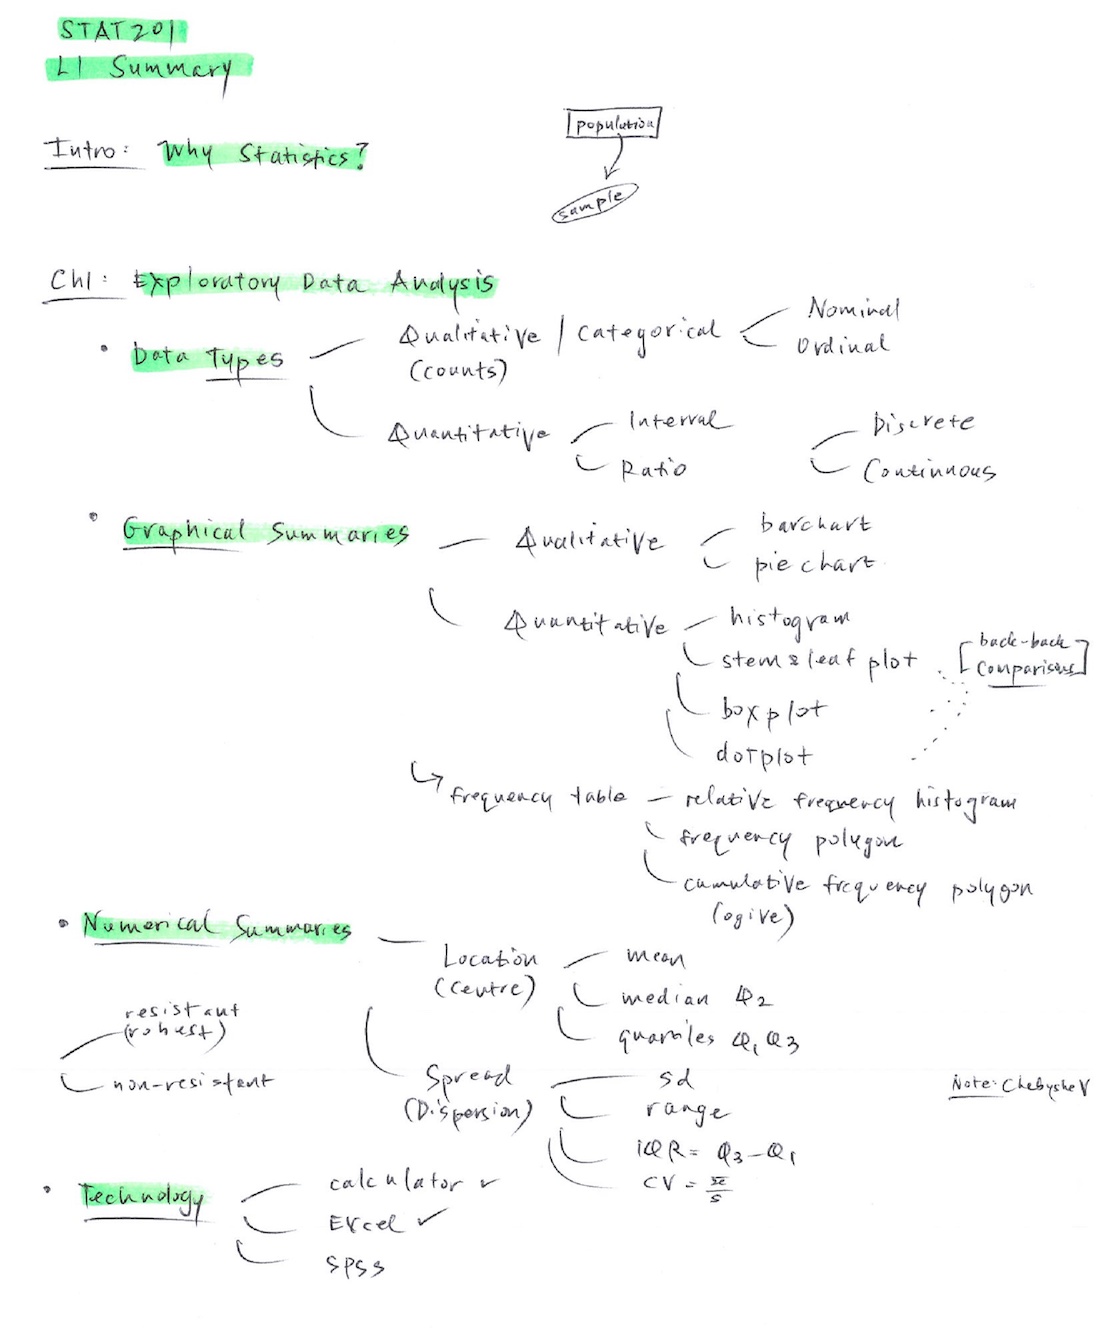 STAT201
L1 Summary
population
Intro: Why Statistics?
sample
Ch1: Exploratory Data Analysis
• Data Types
Qualitative / Categorical
(counts)
Nominal
Ordinal
Quantitative
Interval
Ratio
Discrete
Continuous
• Graphical Summaries
Qualitative
barchart
pie chart
Quantitative
histogram
stem & leaf plot
boxplot
dotplot
[back-back
comparisons]
↳ frequency table
relative frequency histogram
frequency polygon
cumulative frequency polygon
(ogive)
• Numerical Summaries
Location
(Centre)
mean
median Q2
quartiles Q1 Q3
resistant
(robust)
non-resistant
Spread
(Dispersion)
sd
range
IQR = Q3-Q1
CV = x̄/s
Note: Chebyshev
• Technology
calculator ✓
Excel ✓
SPSS